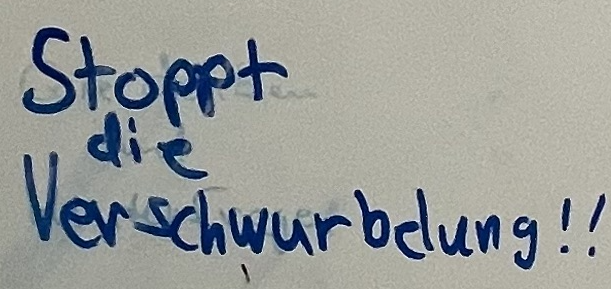 Stoppt
die
Verschwurbelung!!